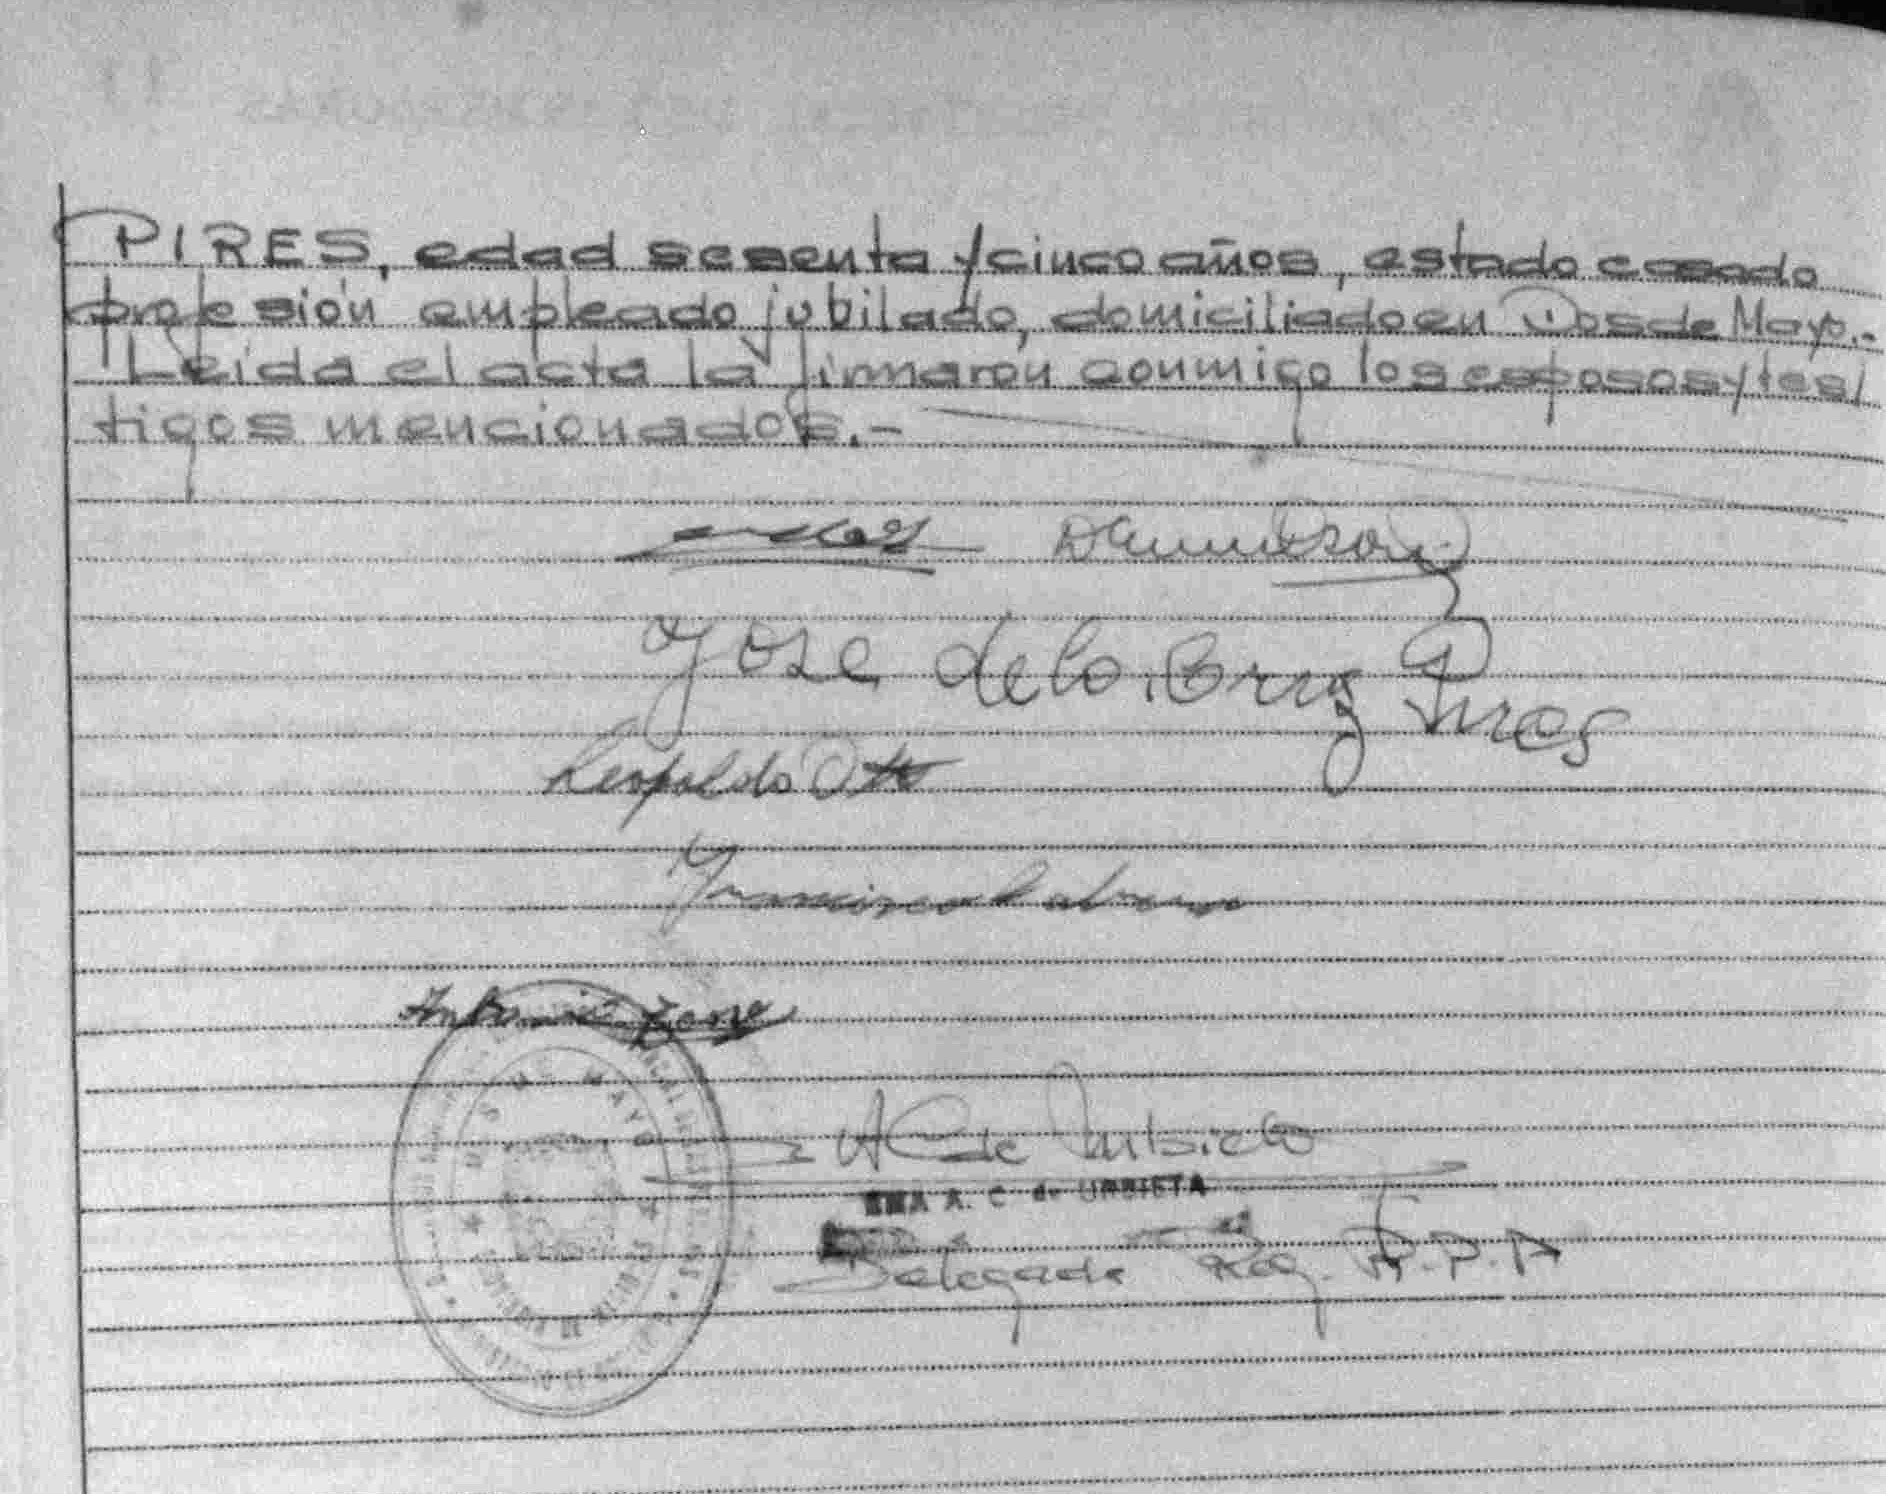 PIRES, edad sesenta y cinco años, estado casado
profesión empleado jubilado, domiciliado en Dos de Mayo.-
Leída el acta la firmaron conmigo los esposos y tes/
tigos mencionados.-
Jose de la Cruz Pires
Leopoldo Otto
Francisco Cabrera
Antonio
A C de Urbieta
EMA A. C. de URBIETA
Delegada Reg. R.P.P
DOS DE MAYO